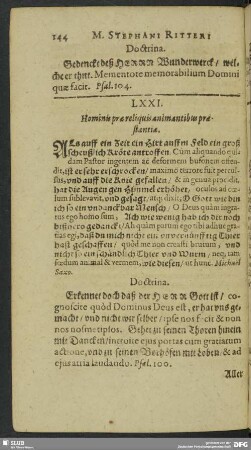 144 M. STEPHANI RITTERI
Doctrina.
Gedenckt deß HERRN Wunderwerck / wel-
che er thut. Mementote memorabilium Domini
quæ facit. Psal. 104.
LXXI.
Hominis præ reliquis animantibus præ-
stantia.
ALs auff ein Zeit ein Hirt auff m Feld ein groß
scheußlich Kröte antroffen. Cum aliquando qui-
dam Pastor ingentem ac deformem bufonem offen-
dit, ist er sehr erschrocken / maximo terrore fuit percul-
sus, vnd auff die Knie gefallen / & in genua procidit,
hat die Augen gen Himmel erhöhet, oculos ad cœ-
lum sublevavit, vnd gesagt, atq; dixit, O Gott wie bin
ich so ein vndanckbar Mensch / O Deus quàm ingra-
tus ego homo sum, Ich wie wenig hab ich der noch
bißhero gedanckt / Ah quàm parum ego tibi adhuc gra-
tias egi, daß du mich nicht ein vnvernünfftig Thier
hast geschaffen / quòd me non creasti brutum, vnd
nicht so ein schändlich Thier vnd Wurm / neq; tam
fœdum animal & vermem, wie diesen / ut hunc. Michael
Saxo.
Doctrina.
Erkennet doch daß der HERR Gott ist / co-
gnoscite quòd Dominus Deus est, er hat vns ge-
macht / vnd nicht wir selber / ipse nos fecit & non
nos nosmetipsos. Gehet zu seinen Thoren hinein
mit Dancken / introite ejus portas cum gratiarum
actione, vnd zu seinen Vorhöfen mit Loben / & ad
ejus atria laudando. Psal. 100.
Aller
SLUB